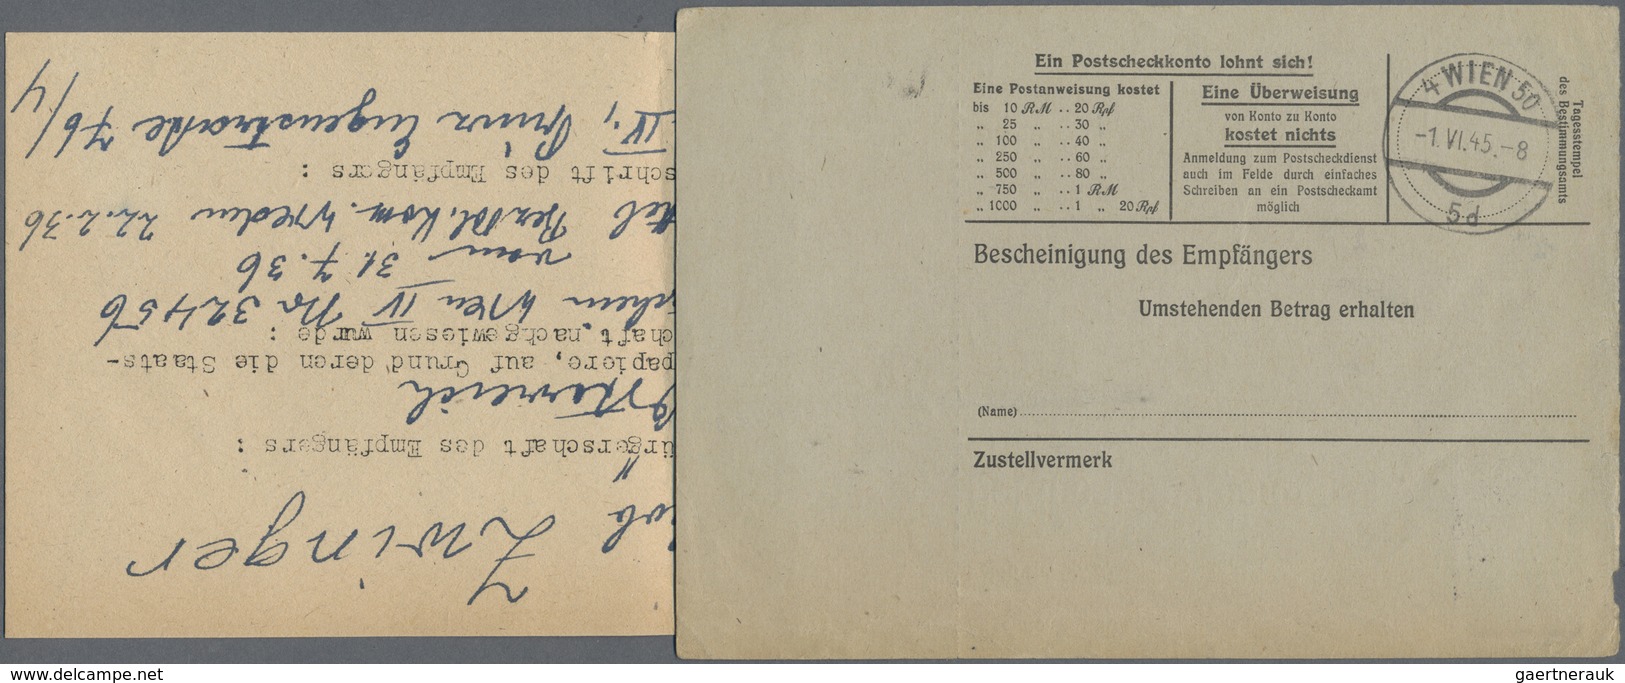 Ein Postscheckkonto lohnt sich!
Eine Postanweisung kostet
bis 10 RM .. 20 Rpf
„ 25 „ .. 30 „
„ 100 „ .. 40 „
„ 250 „ .. 60 „
„ 500 „ .. 80 „
„ 750 „ .. 1 RM
„ 1000 „ .. 1 „ 20 Rpf
Eine Überweisung
von Konto zu Konto
kostet nichts
Anmeldung zum Postscheckdienst
auch im Felde durch einfaches
Schreiben an ein Postscheckamt
möglich
4 WIEN 50
-1.VI.45.-8
5d
Tagesstempel
des Bestimmungsamts
Bescheinigung des Empfängers
Umstehenden Betrag erhalten
(Name)
Zustellvermerk
Zwinger
ürgerschaft des Empfängers :
Österreich
papiere, auf Grund deren die Staats-
chaft nachgewiesen wurde :
schein Wien IV Nr 32456
vom 31.7.36
Bez.Pol.Kom. Wieden 22.2.36
schrift des Empfängers :
IV., Prinz Eugenstraße 76/
/4
www.delcampe.net
gaertnerauk